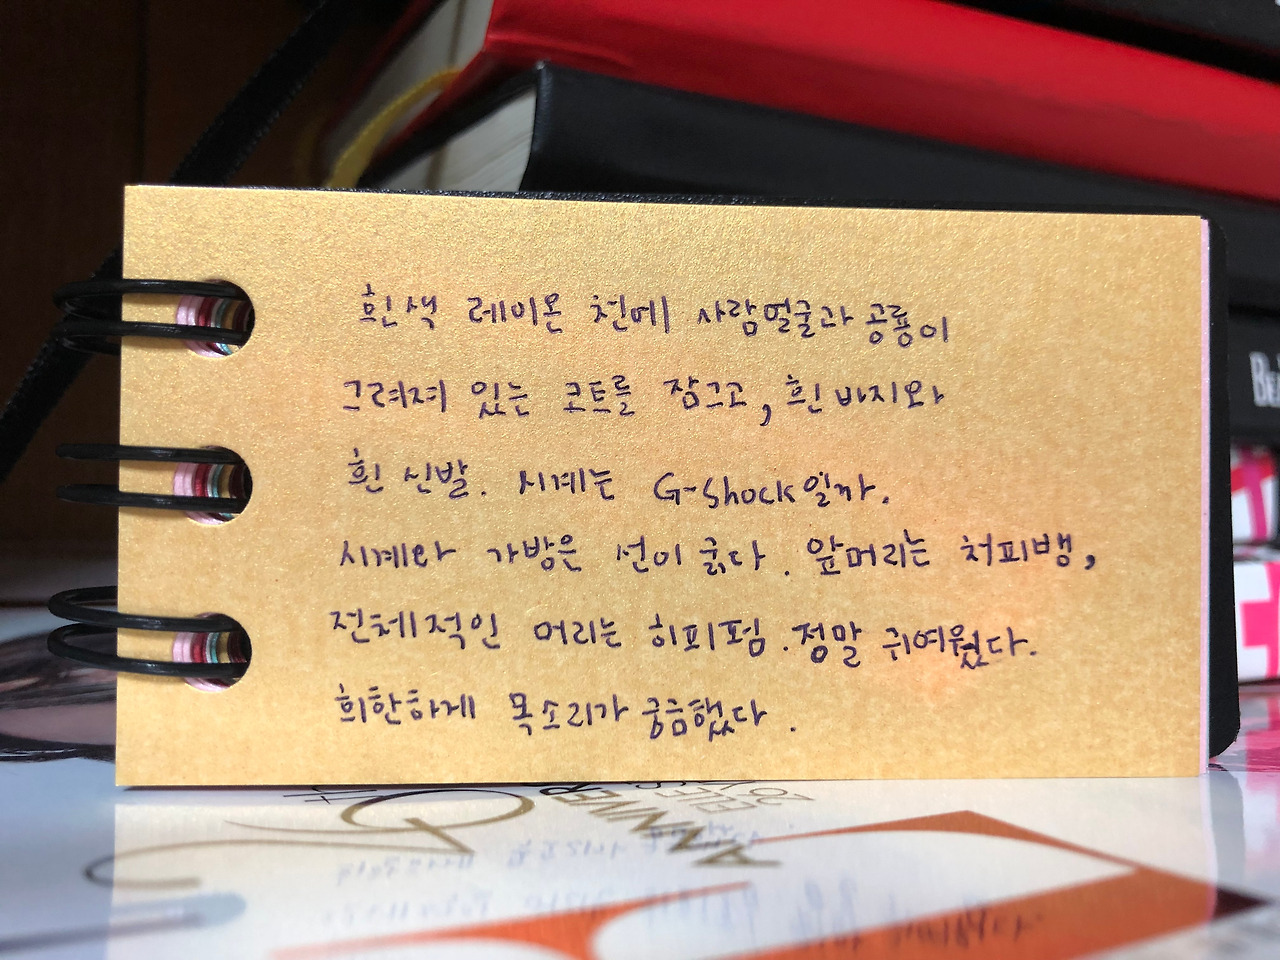 흰색 레이온 천에 사람얼굴과 공룡이
그려져 있는 코트를 잠그고, 흰 바지와
흰 신발. 시계는 G-Shock일까.
시계와 가방은 선이 굵다. 앞머리는 처피뱅,
전체적인 머리는 히피펌. 정말 귀여웠다.
희한하게 목소리가 궁금했다.